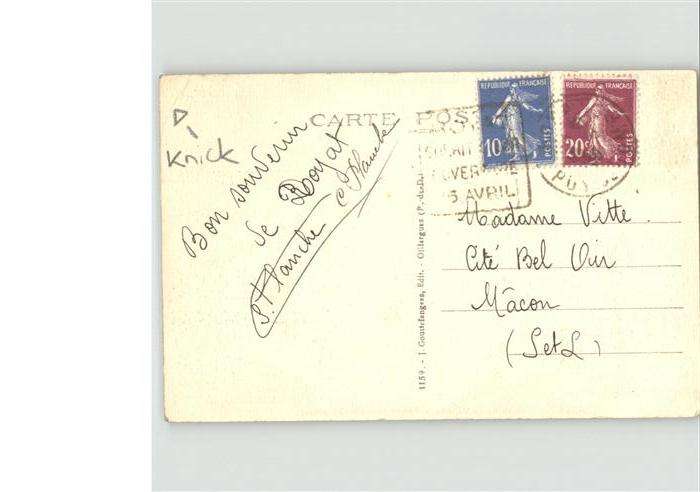 CARTE POST
REPUBLIQUE FRANÇAISE
10
POSTES
REPUBLIQUE FRANÇAISE
20c
POSTES
AVRIL
PUY
D
Knick
Bon souvenir
de Royat
S. Planche
C Planche
1159. - J. Gouttefangeas, Edit. - Olliergues (P.-de-D.)
Madame Vitte.
Cité Bel Air
Mâcon
(S et L)